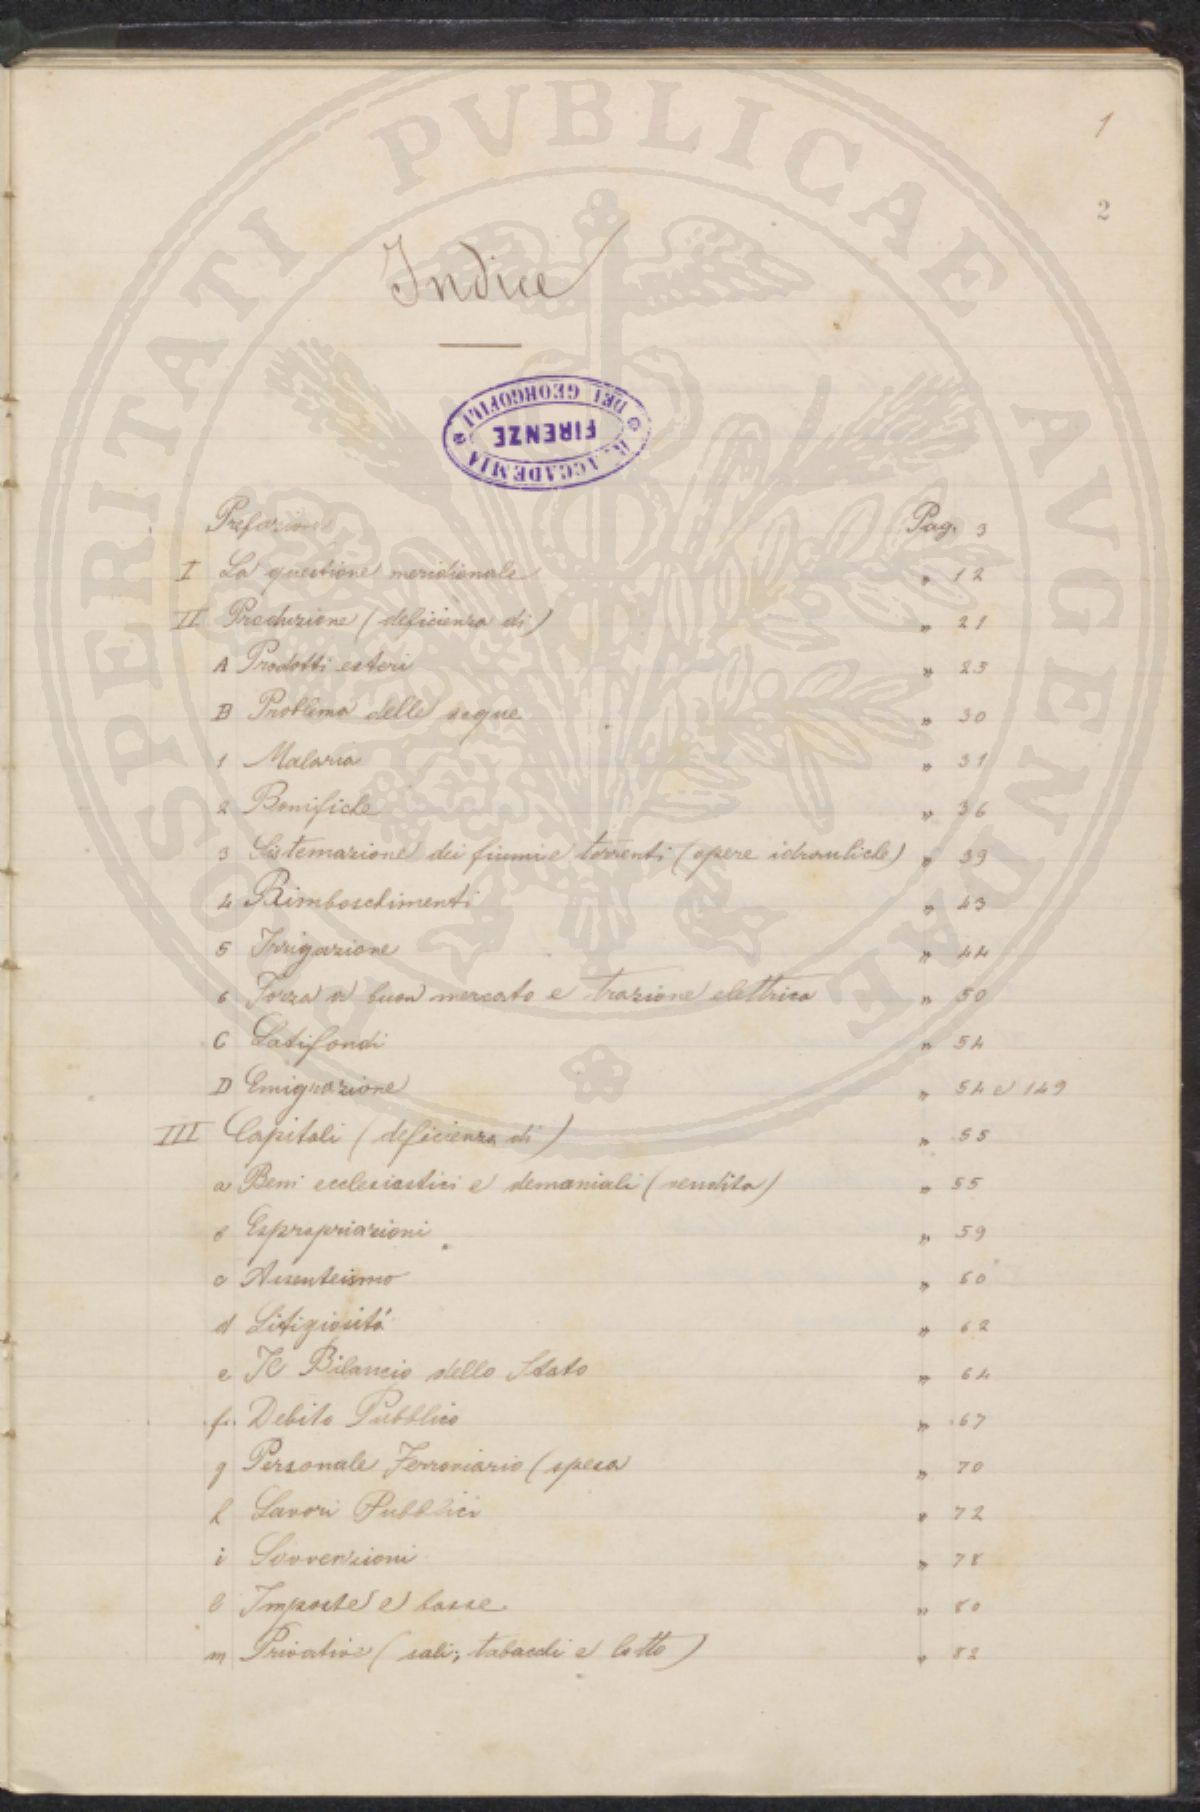 1
2
Indice
R. ACCADEMIA
FIRENZE
DEI GEORGOFILI
PROSPERITATI PVBLICAE AVGENDAE
Prefazione Pag. 3
I La questione meridionale " 12
II Produzione (deficienza di) " 21
A Prodotti esteri " 23
B Problema delle acque " 30
1 Malaria " 31
2 Bonifiche " 36
3 Sistemazione dei fiumi e torrenti (opere idrauliche) " 39
4 Rimboschimenti " 43
5 Irrigazione " 44
6 Forza a buon mercato e trazione elettrica " 50
C Latifondi " 54
D Emigrazione " 54 e 149
III Capitali (deficienza di) " 55
a Beni ecclesiastici e demaniali (vendita) " 55
b Espropriazioni " 59
c Assenteismo " 60
d Litigiosità " 62
e Il Bilancio dello Stato " 64
f. Debito Pubblico " 67
g Personale Ferroviario (spesa " 70
h Lavori Pubblici " 72
i Sovvenzioni " 78
l Imposte e tasse " 80
m Privative (sali, tabacchi e lotto) " 82